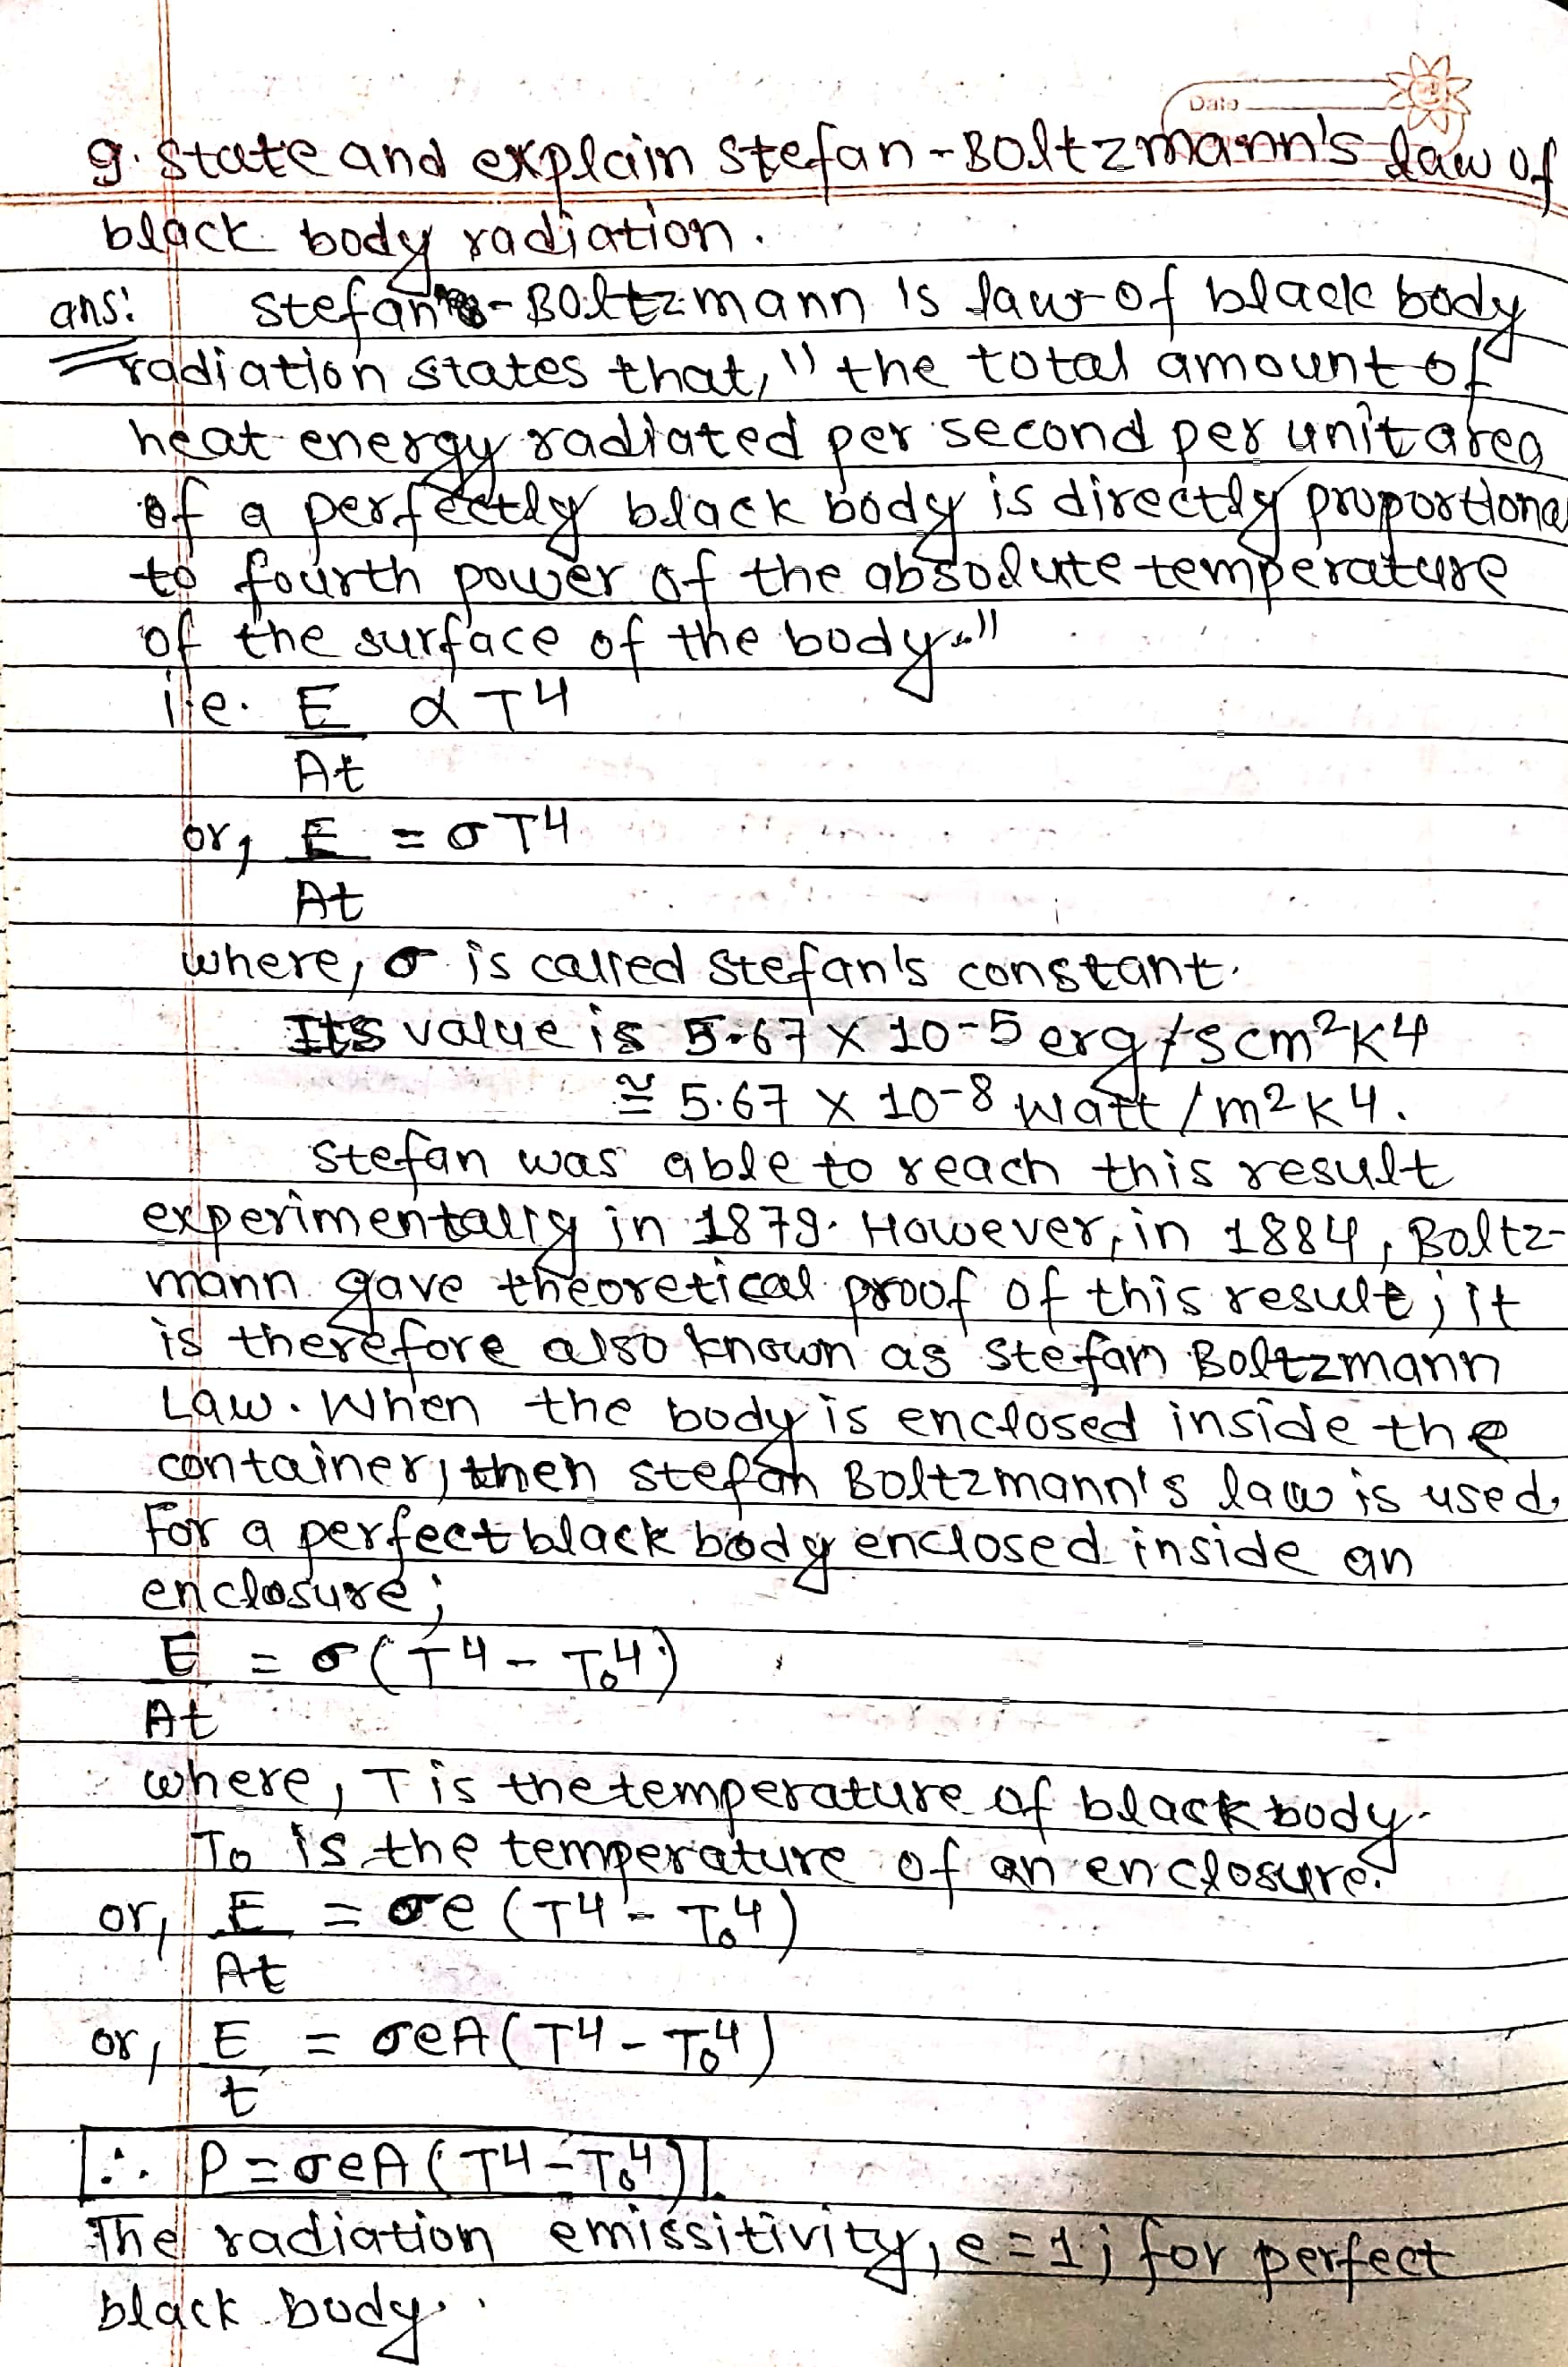 Date
9. State and explain Stefan-Boltzmann's law of
black body radiation.
ans: Stefan - Boltzmann is law of black body
radiation states that, "the total amount of
heat energy radiated per second per unit area
of a perfectly black body is directly proportional
to fourth power of the absolute temperature
of the surface of the body."
i.e. E α T4
At
or, E = σT4
At
where, σ is called stefan's constant.
Its value is 5.67 x 10-5 erg/scm2K4
≅ 5.67 x 10-8 watt/m2K4.
Stefan was able to reach this result
experimentally in 1879. However, in 1884, Boltz-
mann gave theoretical proof of this result; it
is therefore also known as Stefan Boltzmann
Law. When the body is enclosed inside the
container, then stefan Boltzmann's law is used.
For a perfect black body enclosed inside an
enclosure;
E = σ(T4 - To4)
At
where, T is the temperature of black body.
To is the temperature of an enclosure.
or, E = σe (T4 - To4)
At
or, E = σeA(T4 - To4)
t
∴ P = σeA (T4 - To4)
The radiation emissitivity, e = 1; for perfect
black body.